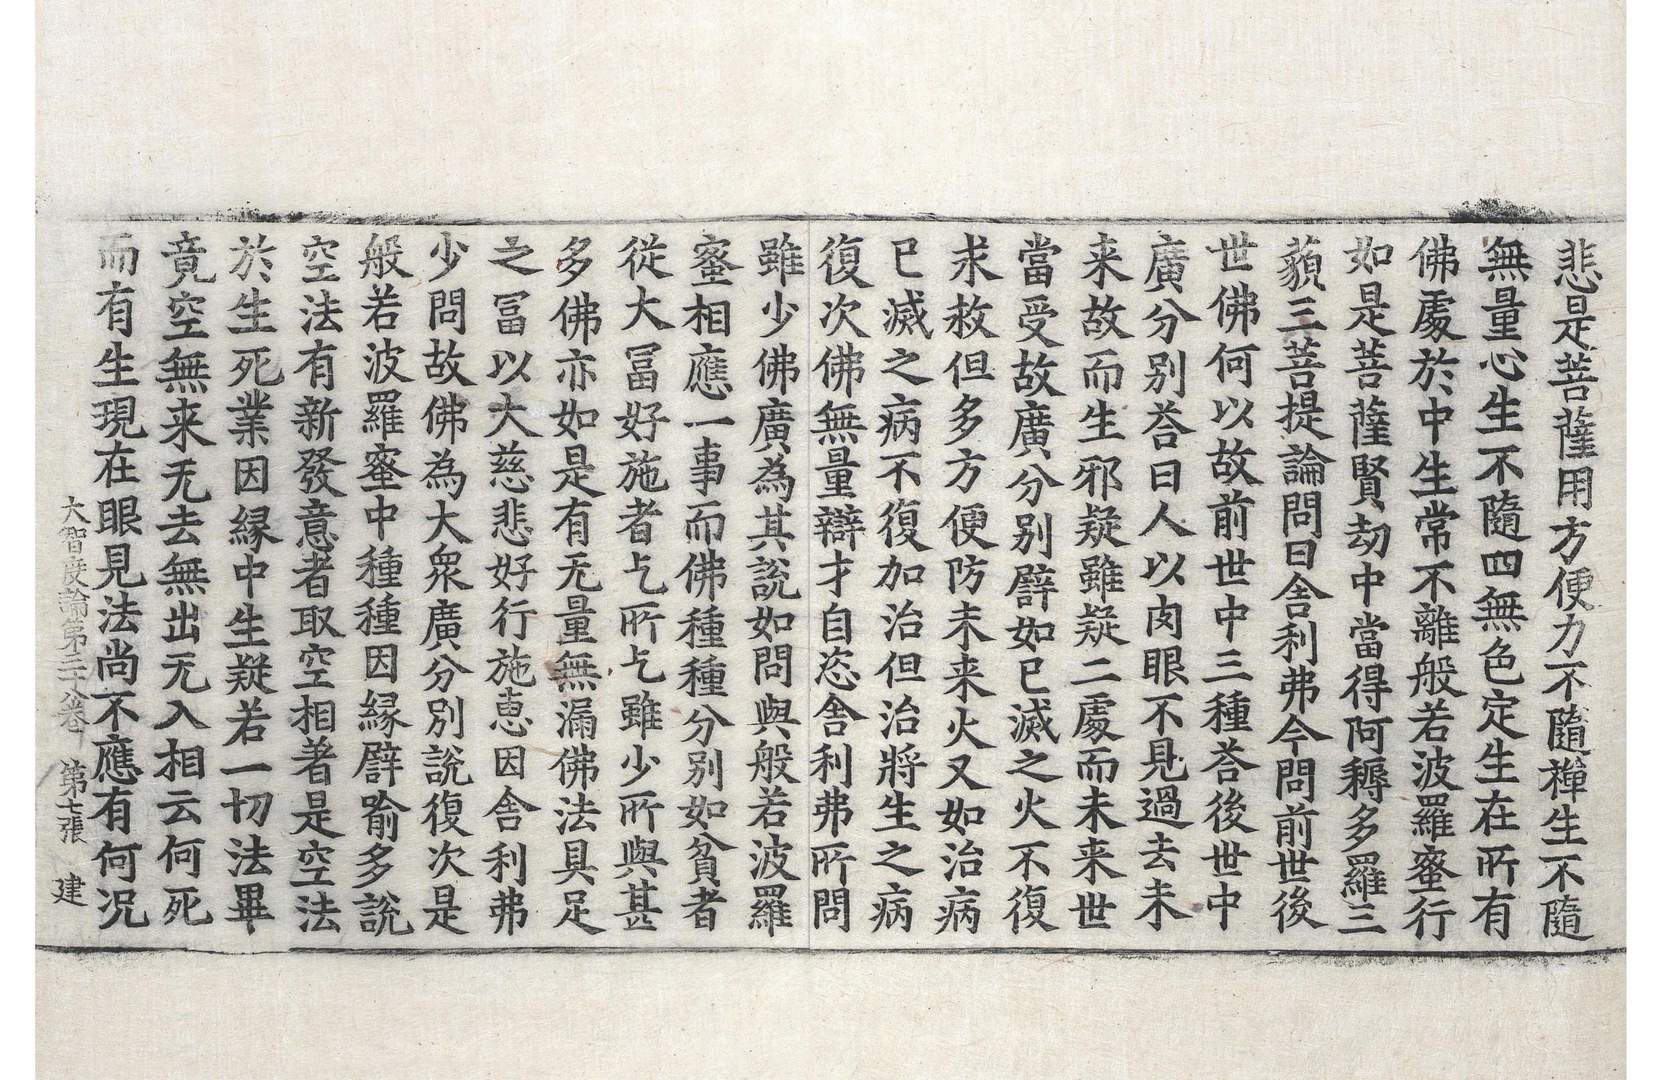 悲是菩薩用方便力不隨禪生不隨
無量心生不隨四無色定生在所有
佛處於中生常不離般若波羅蜜行
如是菩薩賢劫中當得阿耨多羅三
藐三菩提論問曰舍利弗今問前世後
世佛何以故前世中三種荅後世中
廣分別荅曰人以肉眼不見過去未
来故而生邪疑雖疑二處而未来世
當受故廣分別譬如已滅之火不復
求救但多方便防未来火又如治病
已滅之病不復加治但治將生之病
復次佛無量辯才自恣舍利弗所問
雖少佛廣為其說如問與般若波羅
蜜相應一事而佛種種分別如貧者
從大冨好施者乞所乞雖少所與甚
多佛亦如是有无量無漏佛法具足
之冨以大慈悲好行施恵因舍利弗
少問故佛為大衆廣分別說復次是
般若波羅蜜中種種因縁譬喻多說
空法有新發意者取空相著是空法
於生死業因縁中生疑若一切法畢
竟空無来无去無出无入相云何死
而有生現在眼見法尚不應有何況
大智度論第三十八卷 第七張 建